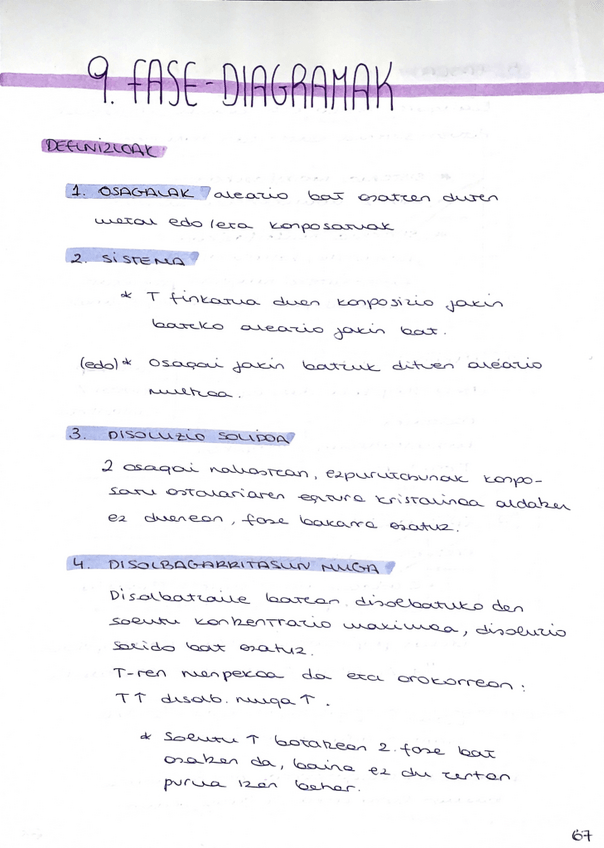 9. FASE-DIAGRAMAK
DEFINIZIOAK
1. OSAGAIAK aleazio bat osatzen duten
metal edo/eta konposatuak
2. SISTEMA
* T finkatua duen konposizio jakin
bateko aleazio jakin bat.
(edo) * osagai jakin batzuk dituen aleazio
multzoa.
3. DISOLUZIO SOLIDOA
2 osagai nahastean, ezpurutasunak konpo-
satu ostalariaren egitura kristalinoa aldatzen
ez duenean, fase bakarra osatuz.
4. DISOLBAGARRITASUN MUGA
Disolbatzaile batean disolbatuko den
solutu kontzentrazio maximoa, disoluzio
solido bat osatuz.
T-ren menpekoa da eta orokorrean:
T↑ disolb. muga ↑.
* Solutu ↑ botatzean 2. fase bat
osatzen da, baina ez du zertan
purua izan behar.
67